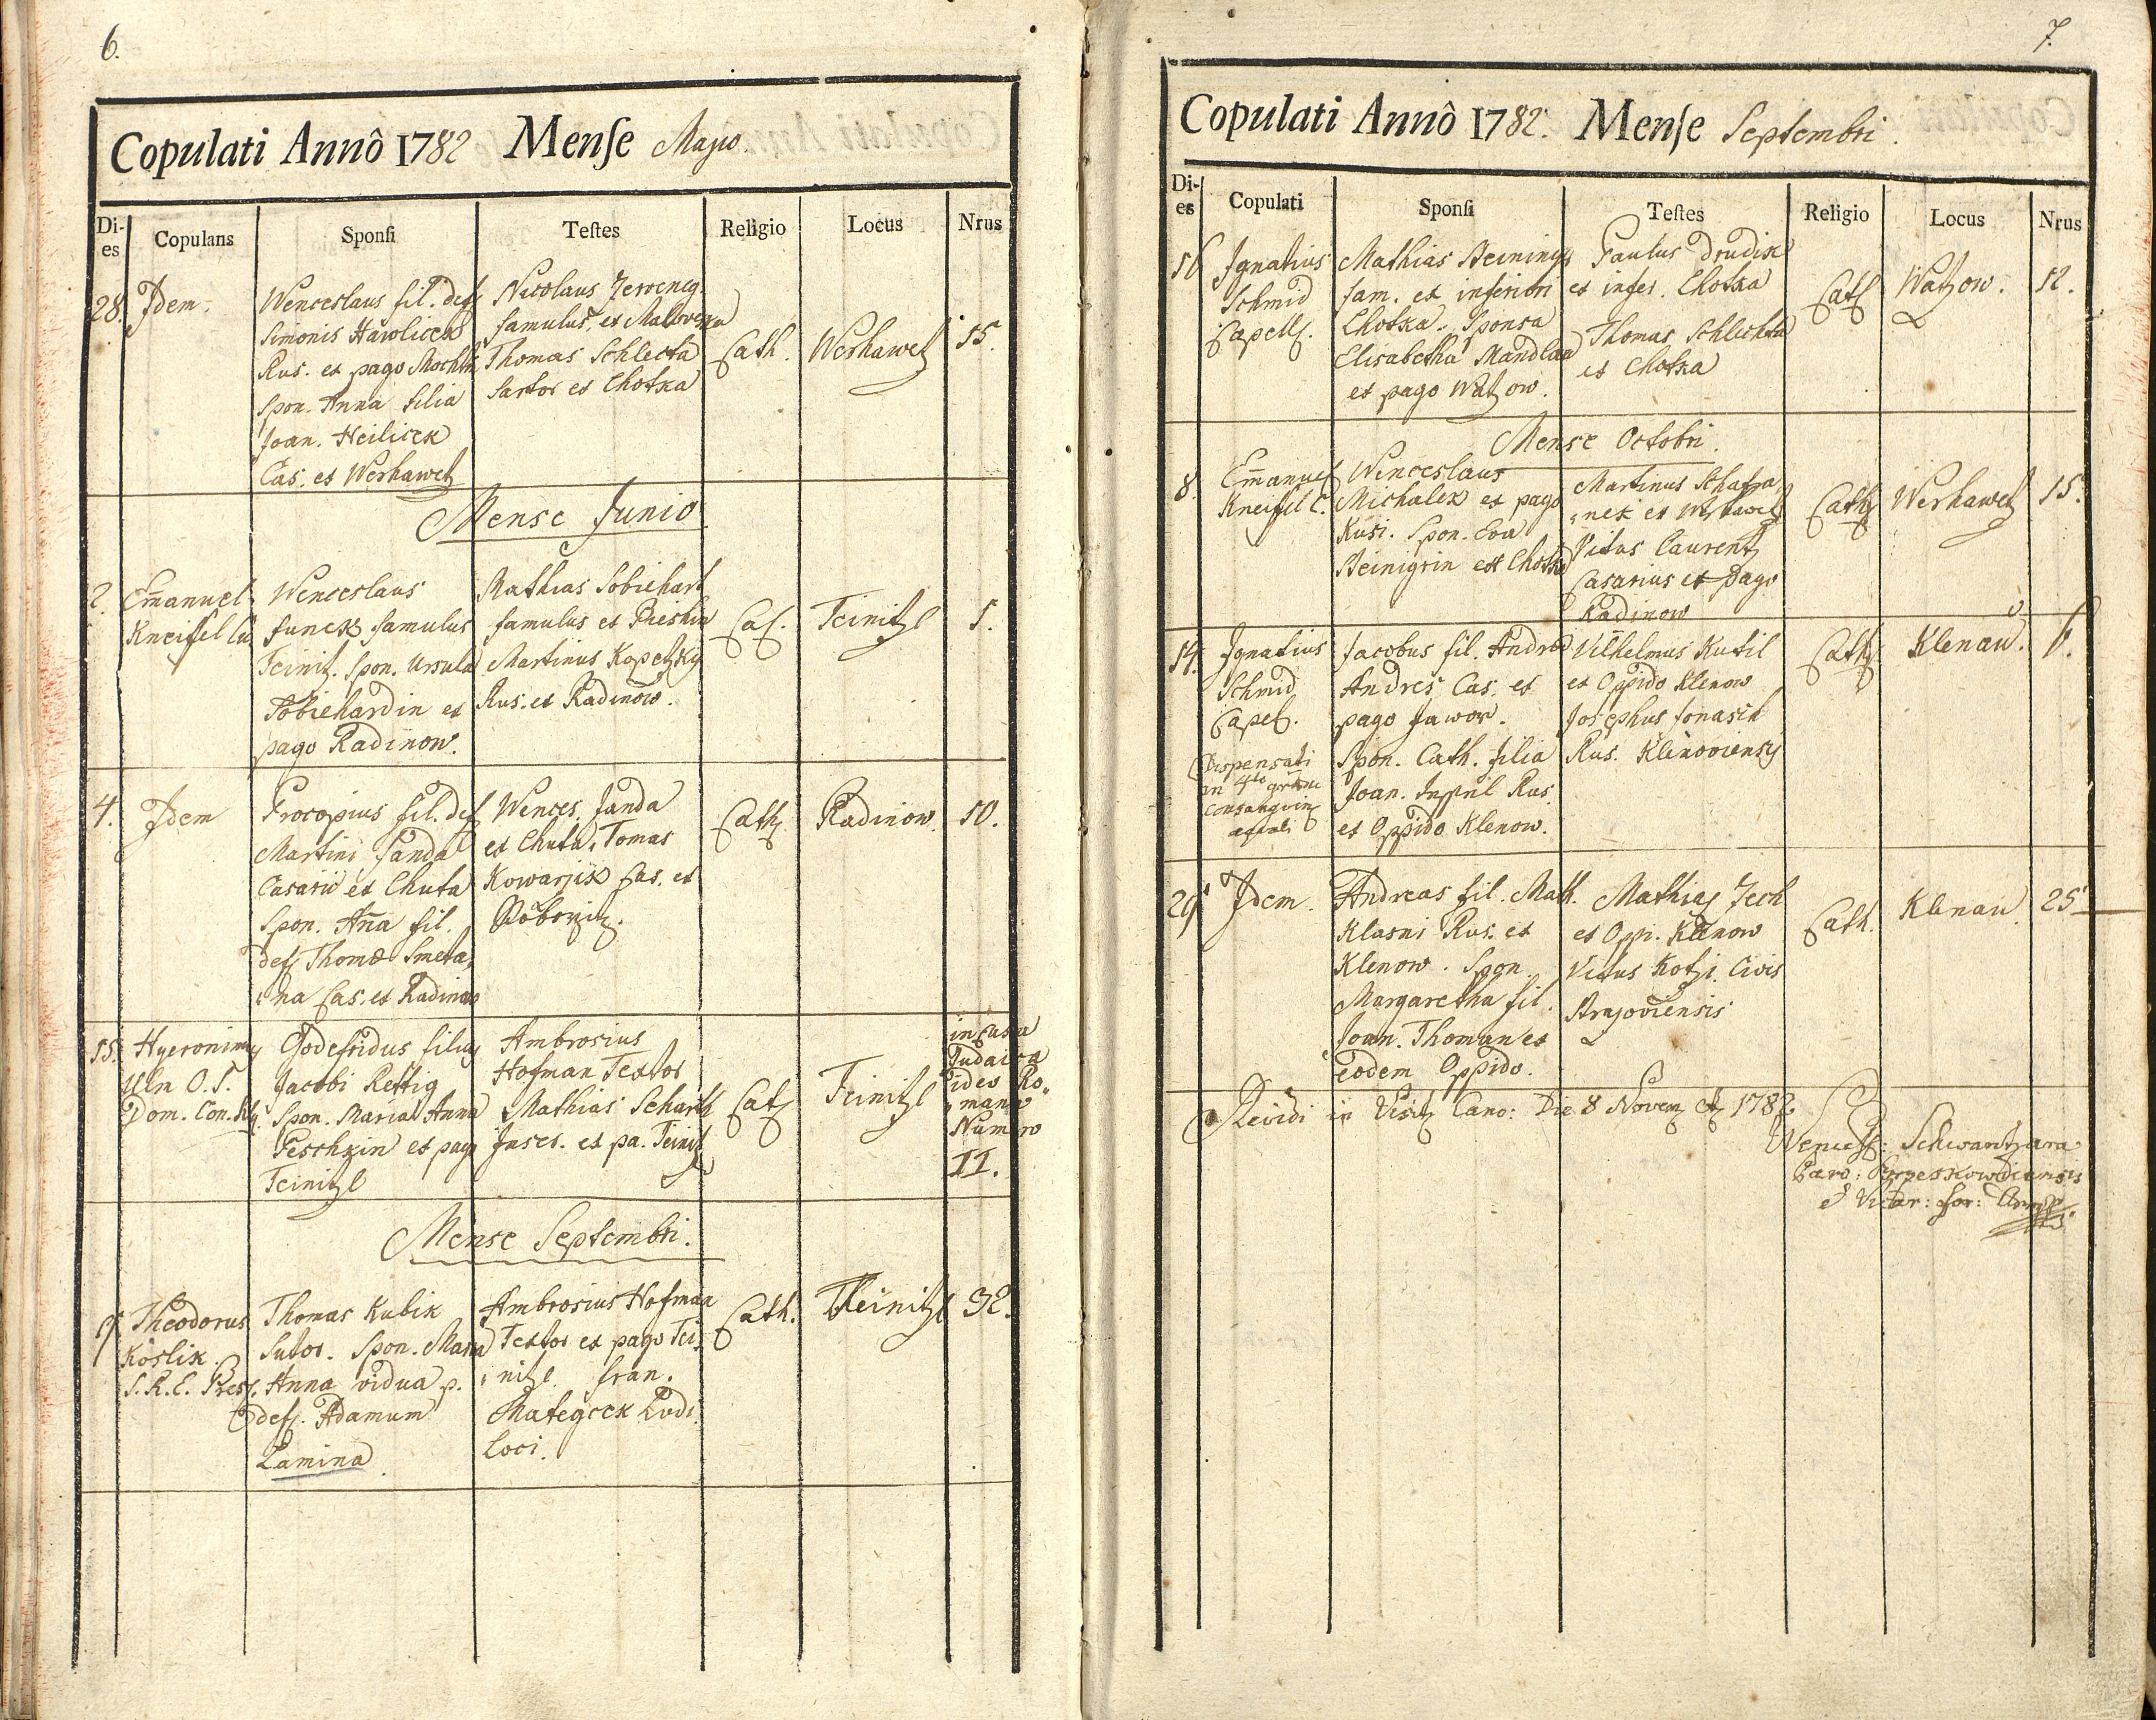 6.
Copulati Annô 1782 Mense Majo.
Di-
es
Copulans
Sponsi
Testes
Religio
Locus
Nrus
28.
Idem.
Wenceslaus fil. def.
Simonis Hawlicek
Rus. ex pago
Spon. Anna filia
Joan. Heilicek
Cas. ex Werhawetz
Nicolaus
famulus, ex
Thomas Schlecta
Sartor ex Chotka
Cath.
Werhawetz
15.
Mense Junio.
2.
Emanuel
Kneifel
Wenceslaus
Funck famulus
Teinitz. Spon. Ursula
Sobiehardin ex
pago Radinow.
Mathias Sobiehart
famulus ex
Martinus Kopetzky
Rus. ex Radinow.
Cat.
Teinitzl
5.
4.
Idem
Procopius fil. def
Martini Janda
Casarii ex Chuta
Spon. Anna fil.
def. Thomæ Smeta,
"na Cas. ex Radinow
Wences. Janda
ex Chuta, Tomas
Kowarjik Cas. ex
Cath.
Radinow.
10.
15.
Hyeronimus
Ulm O. P.
Dom. Con.
Godefridus filius
Jacobi Rettig
Spon. Maria Anna
Peschkin ex pago
Teinitzl
Ambrosius
Hofman Textor
Mathias Scharth
ex pa. Teinitz
Cath
Teinitzl
in Casa
Judaica
ideo Ro"
"mano
Numero
II.
Mense Septembri.
Theodorus
Koslik
S. R. E. Pres.
Thomas Kubik
Sutor. Spon. Maria
Anna vidua p.
def. Adamum
Lamina
Ambrosius Hofman
Textor ex pago Tei,
"nitzl. Fran.
Mategcek Ludi
Loci.
Cath.
Theinitzl
32.
7.
Copulati Annô 1782. Mense Septembri.
Di-
es
Copulati
Sponsi
Testes
Religio
Locus
Nrus
16
Ignatius
Schmid
Capell.
Mathias
fam. ex inferiori
Chotka. Sponsa
Elisabetha
ex pago Watzow.
Paulus Drudik
ex infer. Chotka
Thomas Schlechta
ex Chotka
Cath
Watzow.
12.
Mense Octobri.
8.
Emanuel
Kneifel C.
Wenceslaus
Michalek ex pago
Kusi. Spon. Eva
ex Chotka
Martinus Schafra,
"nek ex Werhawetz
Vitus Laurentz
Casarius ex pago
Radinow
Cath
Werhawetz
15.
14.
Ignatius
Schmid
Capel.
Dispensati
in 4to
consanguin
Jacobus fil. Andreæ
Andres Cas. ex
pago Jawor.
Spon. Cath. filia
Joan. Rus.
ex Oppido Klenow.
Vilhelmus Kutil
ex Oppido Klenow
Josephus Jonasch
Rus. Klenoviensis
Cath
Klenau.
6.
29
Idem.
Andreas fil. Math.
Klasni Rus. ex
Klenow. Spon.
Margaretha fil.
Joan. Thoman ex
Eodem Oppido.
Mathias Zech
ex Oppi. Klenow
Vitus Kotzi Civis
Cath.
Klenau.
25
Revidi in Visit Cano: Die 8 Novem 1782.
Wencesl: Schwantzara
Paro:
& Vicar: For: